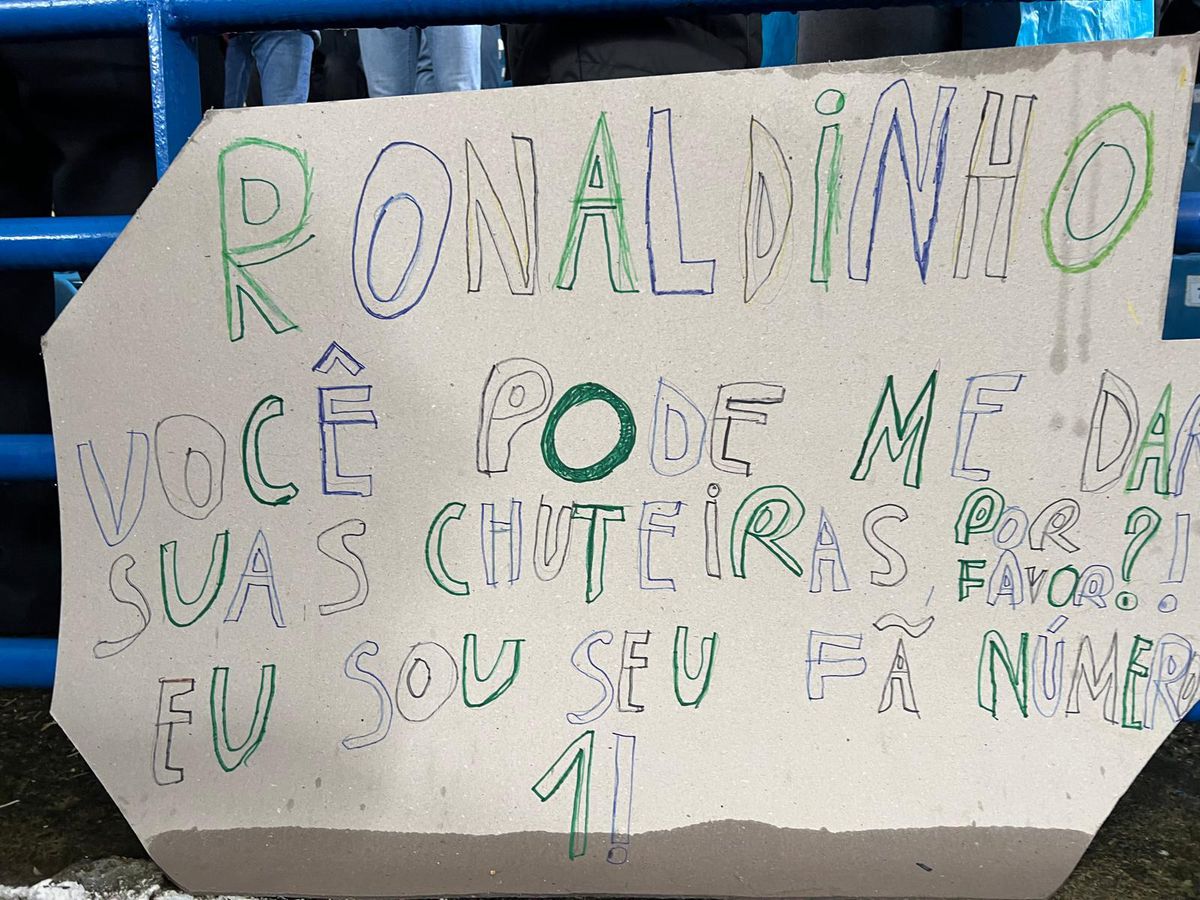 RONALDINHO
VOCÊ PODE ME DAR
SUAS CHUTEIRAS POR FAVOR?!
EU SOU SEU FÃ NÚMERO
1!